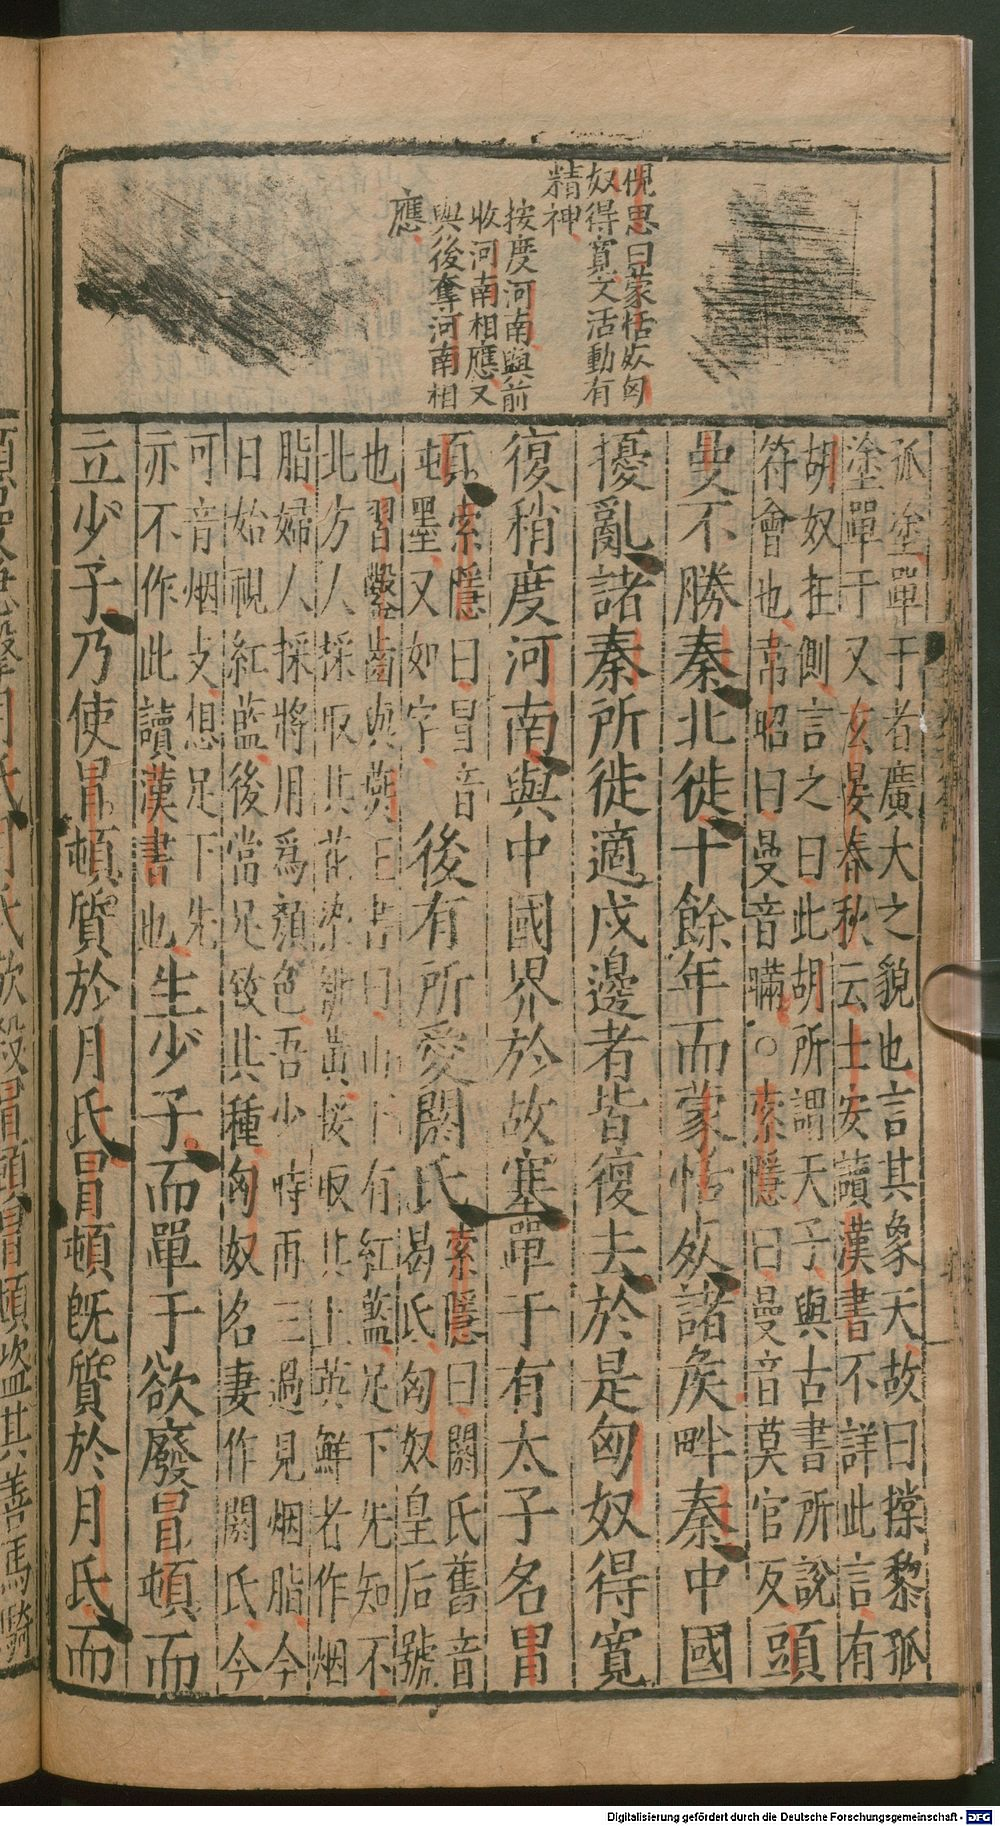 倪思曰蒙恬死匈
奴得寛文活動有
精神
按度河南與前
收河南相應又
與後奪河南相
應
孤塗單于者廣大之貌也言其象天故曰撐黎孤
塗單于又玄晏春秋云士安讀漢書不詳此言有
胡奴在側言之曰此胡所謂天子與古書所說
符會也韋昭曰曼音瞞○索隱曰曼音莫官反頭
曼不勝秦北徙十餘年而蒙恬死諸矦畔秦中國
擾亂諸秦所徙適戍邊者皆復去於是匈奴得寬
復稍度河南與中國界於故塞單于有太子名冒
頓索隱曰冒音
墨又如字
後有所愛閼氏索隱曰閼氏舊音
曷氏匈奴皇后號
也習鑿齒與燕王書曰山下有紅藍足下先知不
北方人採取其花染緋黃挼取其上英鮮者作烟
脂婦人採將用爲顔色吾少時再三過見烟脂今
日始視紅藍後當足致其種匈奴名妻作閼氏今
可音烟支想足下先
亦不作此讀漢書也
生少子而單于欲廢冒頓而
立少子乃使冒頓質於月氏冒頓旣質於月氏而
頭曼急擊月氏月氏欲殺冒頓冒頓盜其善馬騎
Digitalisierung gefördert durch die Deutsche Forschungsgemeinschaft - DFG